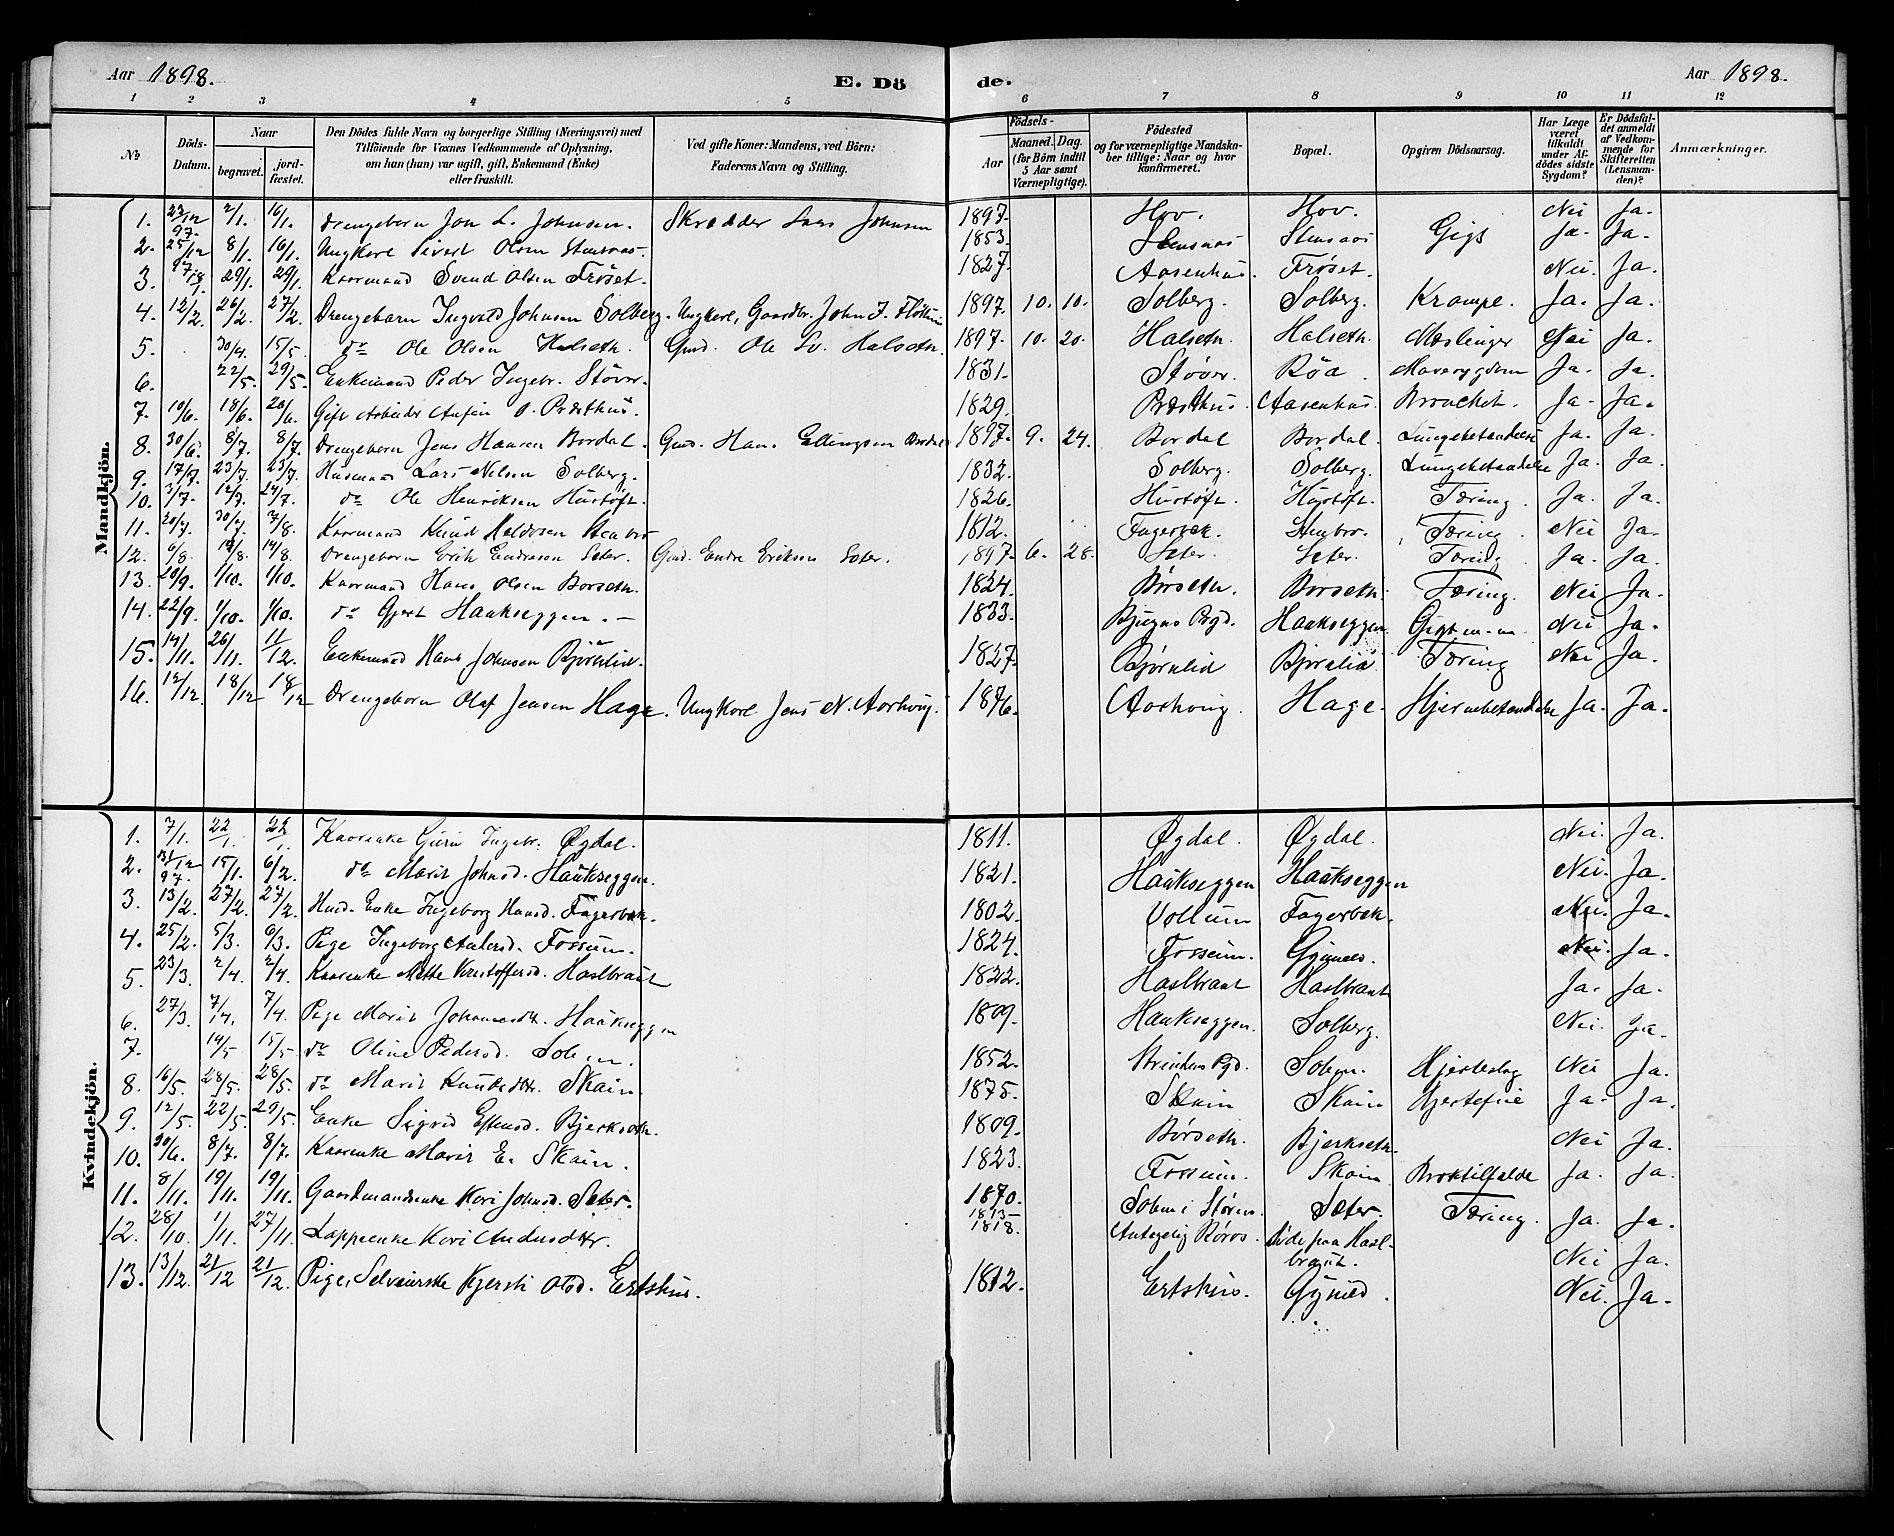 Aar 1898. E. Dö de. Aar 1898.
1 2 3 4 5 6 7 8 9 10 11 12
No
Döds-Datum.
Naar
begravet.
jord-fæstet.
Den Dödes fulde Navn og borgerlige Stilling (Næringsvei) med
Tilföiende for Voxnes Vedkommende af Oplysning,
om han (hun) var ugift, gift, Enkemand (Enke)
eller fraskilt.
Ved gifte Koner: Mandens, ved Börn:
Faderens Navn og Stilling.
Födsels-
Aar
Maaned. Dag.
(for Börn indtil
5 Aar samt
Værnepligtige).
Födested
og for værnepligtige Mandska-
ber tillige: Naar og hvor
konfirmeret.
Bopæl.
Opgiven Dödsaarsag.
Har Læge
været
tilkaldt
under Af-
dödes sidste
Sygdom?
Er Dödsfal-
det anmeldt
af Vedkom-
mende for
Skifteretten
(Lensman-
den)?
Anmærkninger.
Mandkjön.
1. 22/12 97. 2/1. 16/1. Drengebarn Jon L. Johnsen. Skrædder Lars Johnsen 1897. Hov. Hov. Nei Ja.
2. 25/12 97 8/1. 16/1. Ungkarl Sivert Olsen Stensaas. 1853. Stensaas Stensaas Gigt Ja. Ja.
3. 18/1. 29/1. 29/1. Kaarmand Svend Olsen Frøset. 1827. Aasenhus. Frøset. Nei. Ja.
4. 12/2. 26/2. 27/2. Drengebarn Ingvald Johnsen Solberg. Ungkarl, Gaardbr. John J. 1897. 10. 10. Solberg. Solberg. Krampe. Ja. Ja.
5. 30/4. 15/5. do Ole Olsen Halseth. Gmd. Ole Sv. Halseth. 1897. 10. 20. Halseth. Halseth. Mæslinger Nei Ja.
6. 22/5. 29/5. Enkemand Peder Ingebr. Støver. 1831. Støver. Röa. Mavesygdom Ja. Ja.
7. 10/6. 18/6. 26/6. Gift Arbeider Anfin O. Præsthus. 1829. Præsthus. Aasenhus. Bronchit. Ja. Ja.
8. 30/6. 8/7. 8/7. Drengebarn Jens Hansen Bordal. Gmd. Hans Ellingsen Bordal 1897. 9. 24. Bordal Bordal. Lungebetændelse Ja. Ja.
9. 17/7. 23/7. 23/7. Husmand Lars Nilsen Solberg. 1832. Solberg. Solberg. Lungebetændelse Ja. Ja.
10. 3/7. 12/7. 24/7. do Ole Henriksen Hustøft. 1826. Hustøft. Hustøft. Tæring. Ja. Ja.
11. 20/7. 30/7. 7/8. Kaarmand Knud Haldosen 1812. Fagerbæk. Tæring. Nei Ja.
12. 6/8. 14/8. 14/8. Drengebarn Erik Endresen Sæter. Gmd. Endre Eriksen Sæter. 1897. 6. 28. Sæter. Sæter. Tæring. Ja. Ja.
13. 20/9. 1/10. 1/10. Kaarmand Hans Olsen Børseth. 1824. Børseth. Børseth. Tæring. Nei Ja.
14. 22/9. 1/10. 1/10. do Gjert Haakseggen. 1833. Bjugns Prgd. Haakseggen Gigt m. m. Nei Ja.
15. 14/11. 26/11. 11/12. Enkemand Hans Johnsen Bjørnlid. 1827. Bjørnlid Bjørnlid Tæring Nei Ja.
16. 12/12. 18/12 18/12 Drengebarn Olaf Jensen Hage. Ungkarl Jens N. Aashøug. 1876. Aashoug. Hage. Hjernebetændelse Ja. Ja.
Kvindekjön.
1. 7/1. 22/1. 22/1. Kaarenke Guru Ingebr. Øgdal. 1811. Øgdal. Øgdal. Nei. Ja.
2. 31/12 97. 15/1. 6/2. do Marit Johnsd. Haakseggen. 1821. Haakseggen Haakseggen Nei. Ja.
3. 13/2. 27/2. 27/2. Husm. Enke Ingeborg Hansd. Fagerbæk. 1802. Vollum Fagerbæk. Nei. Ja.
4. 25/2. 5/3. 6/3. Pige Ingeborg Andersd. Fossum. 1824. Fossum. Gynnes. Nei. Ja.
5. 23/3. 2/4. 2/4. Kaarenke Mette Kristoffersd. Haslbraut 1822. Haslbraut Haslbraut Ja. Ja.
6. 27/3. 7/4. 7/4. Pige Marit Johannesdtr. Haakseggen 1809. Haakseggen. Solberg. Nei. Ja.
7. 14/5 15/5. do Oline Pedersd. Solem. 1852. Strindens Pgd. Solem. Hjerteslag Nei Ja.
8. 16/5. 28/5. 28/5. do Marit Knudsdtr. Skain. 1875. Skain Skain Hjertefeil Ja. Ja.
9. 12/5. 22/5. 29/5. Enke Sigrid Estensd. Bjerkseth. 1809. Børseth. Bjerkseth. Nei Ja.
10. 30/6. 8/7. 8/7. Kaarenke Marit E. Skain. 1823. Fossum. Skain. Broktilfælde Ja. Ja.
11. 8/11. 19/11. 19/11. Gaardmandsenke Kari Johnsd. Sæter. 1870. Solem i Støren. Sæter. Tæring. Ja. Ja.
12. 28/10. 1/11. 27/11. Lappeenke Kari Andersdtr. 1813–1818. Antagelig Røros. Døde paa Hasl-
braut. Nei Ja.
13. 13/12. 21/12 21/12. Pige, Kjersti Olsd. Ertshus. 1812. Ertshus. Gynnes. Nei. Ja.